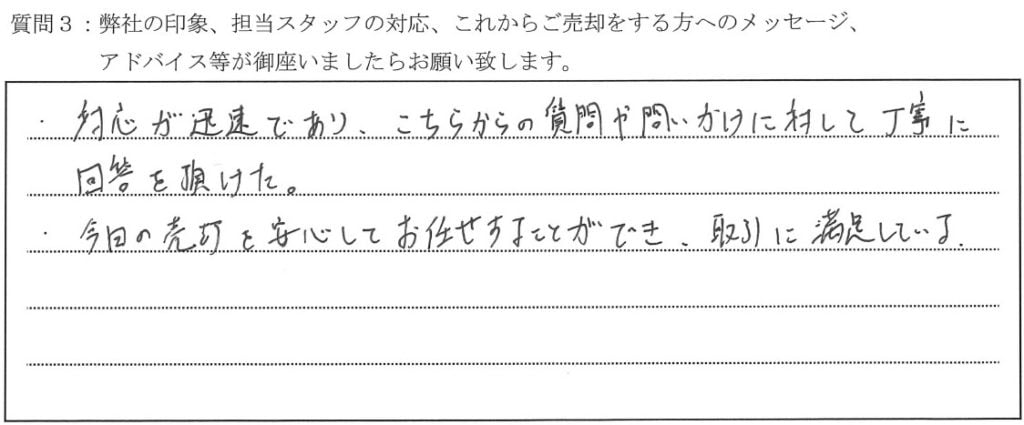 質問３：弊社の印象、担当スタッフの対応、これからご売却をする方へのメッセージ、
アドバイス等が御座いましたらお願い致します。
・対応が迅速であり、こちらからの質問や問いかけに対して丁寧に
回答を頂けた。
・今回の売却を安心してお任せすることができ、取引に満足している。